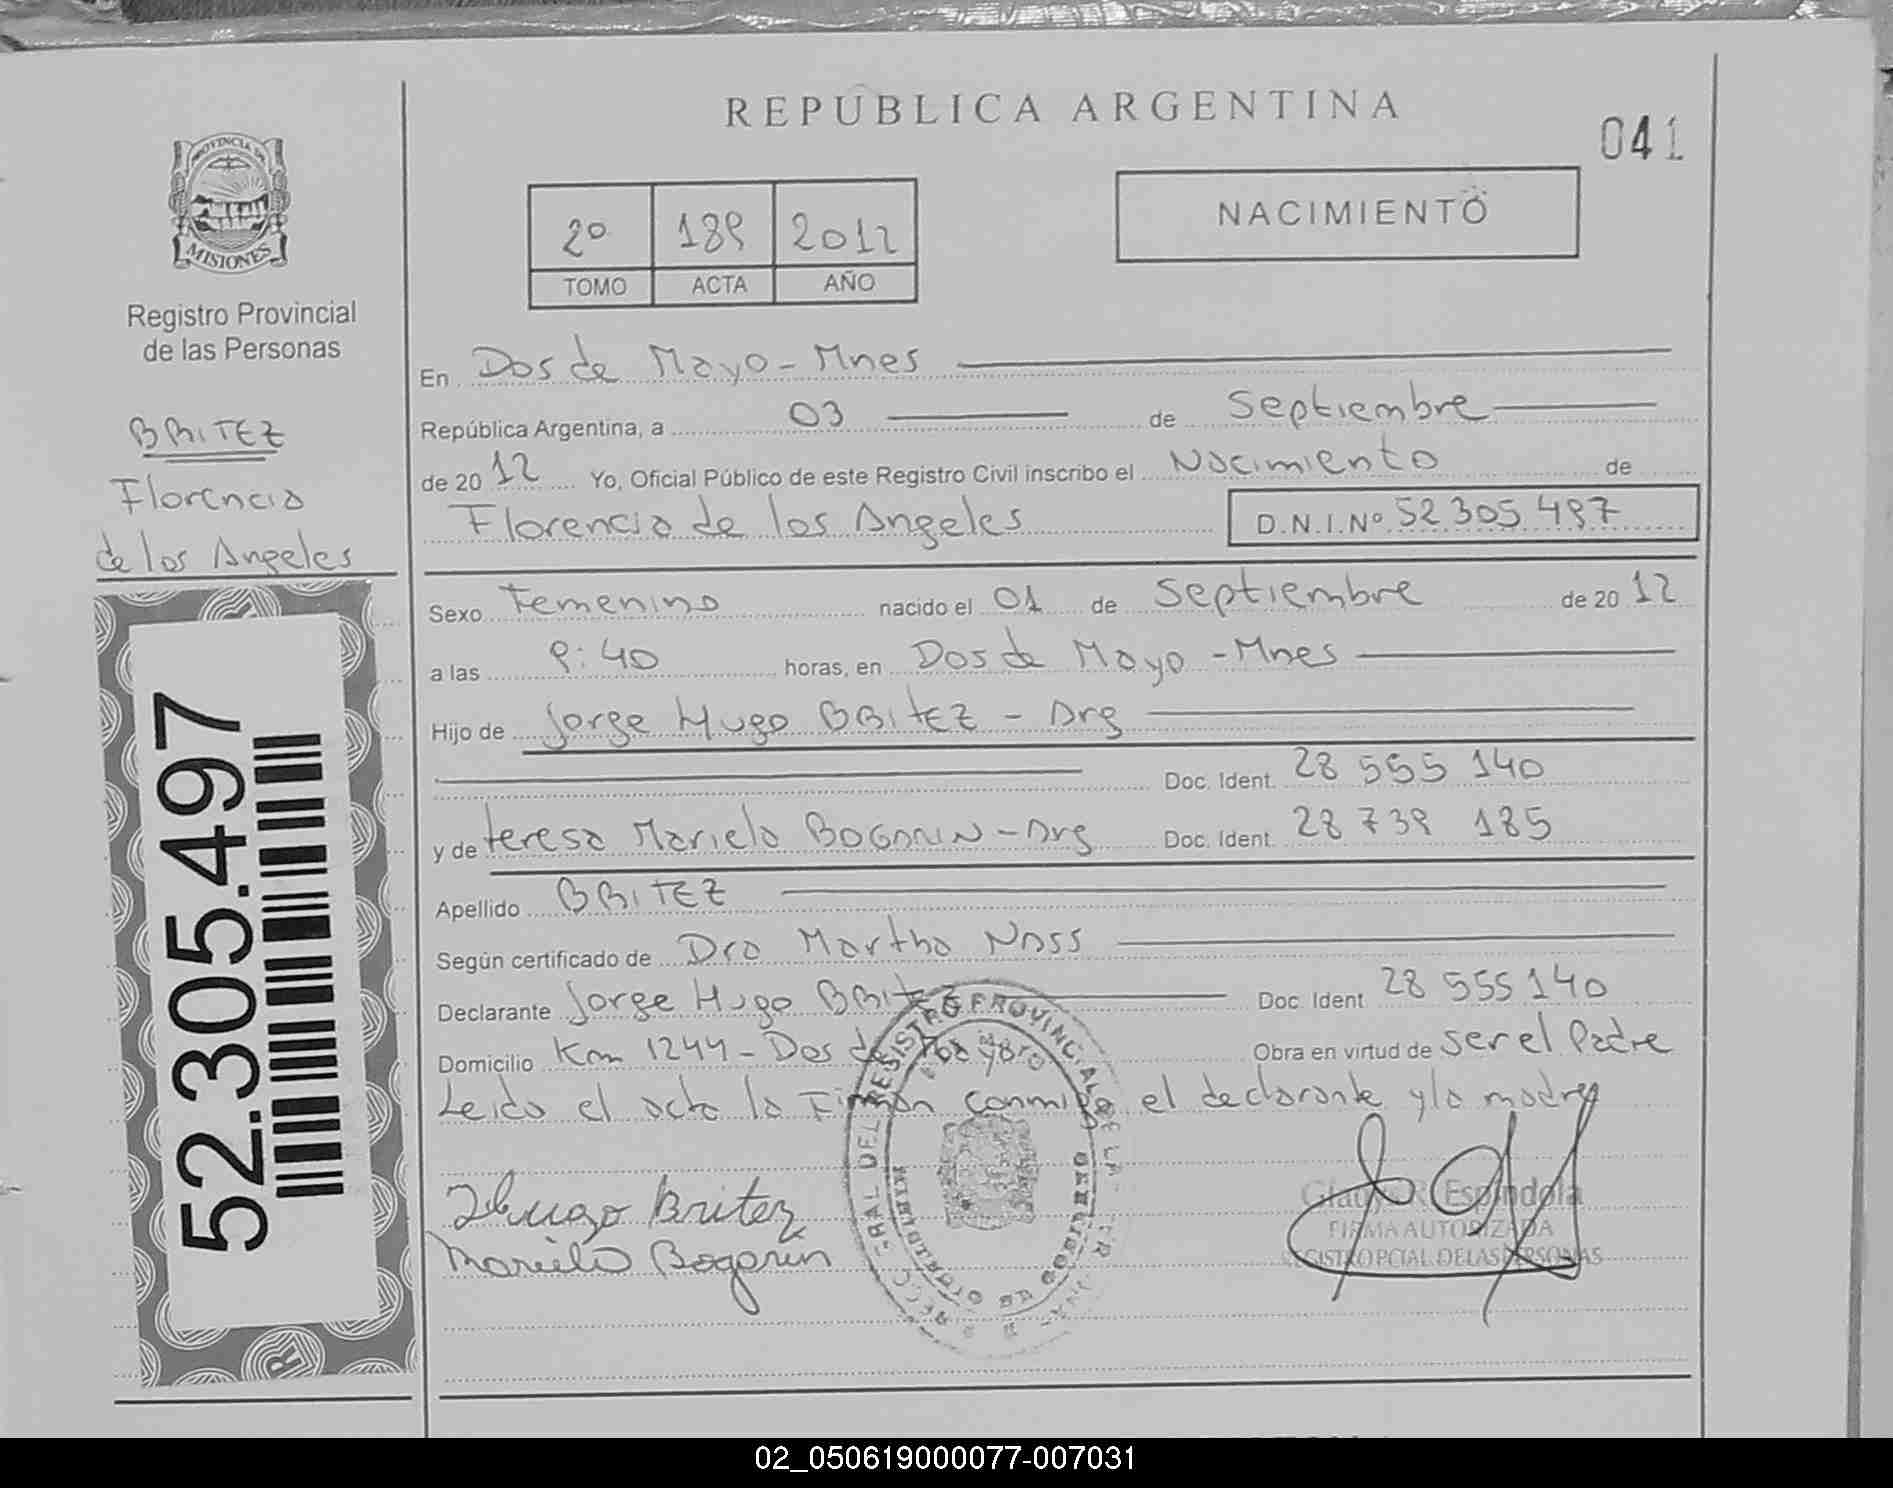 REPUBLICA ARGENTINA
041
PROVINCIA DE
MISIONES
Registro Provincial
de las Personas
BRITEZ
Florencia
de los Angeles
52.305.497
2º 189 2012
TOMO ACTA AÑO
NACIMIENTO
En Dos de Mayo - Mnes
República Argentina, a 03 de Septiembre
de 2012 Yo, Oficial Público de este Registro Civil inscribo el Nacimiento de
Florencia de los Angeles D.N.I.Nº 52 305 497
Sexo Femenino nacido el 01 de Septiembre de 2012
a las 9:40 horas, en Dos de Mayo - Mnes
Hijo de Jorge Hugo BRITEZ - Arg
Doc. Ident. 28 555 140
y de Teresa Mariela BOGARIN - Arg Doc. Ident. 28 739 185
Apellido BRITEZ
Según certificado de Dra Martha Nass
Declarante Jorge Hugo Britez Doc. Ident 28 555 140
Domicilio Km 1244 - Dos de Mayo Obra en virtud de ser el Padre
Leida el acta la Firman conmigo el declarante y la madre
JHugo Britez
Mariela Bogarin
REGISTRO PROVINCIAL DE LA
Gladys R. Espindola
FIRMA AUTORIZADA
REGISTRO PCIAL. DE LAS PERSONAS
02_050619000077-007031